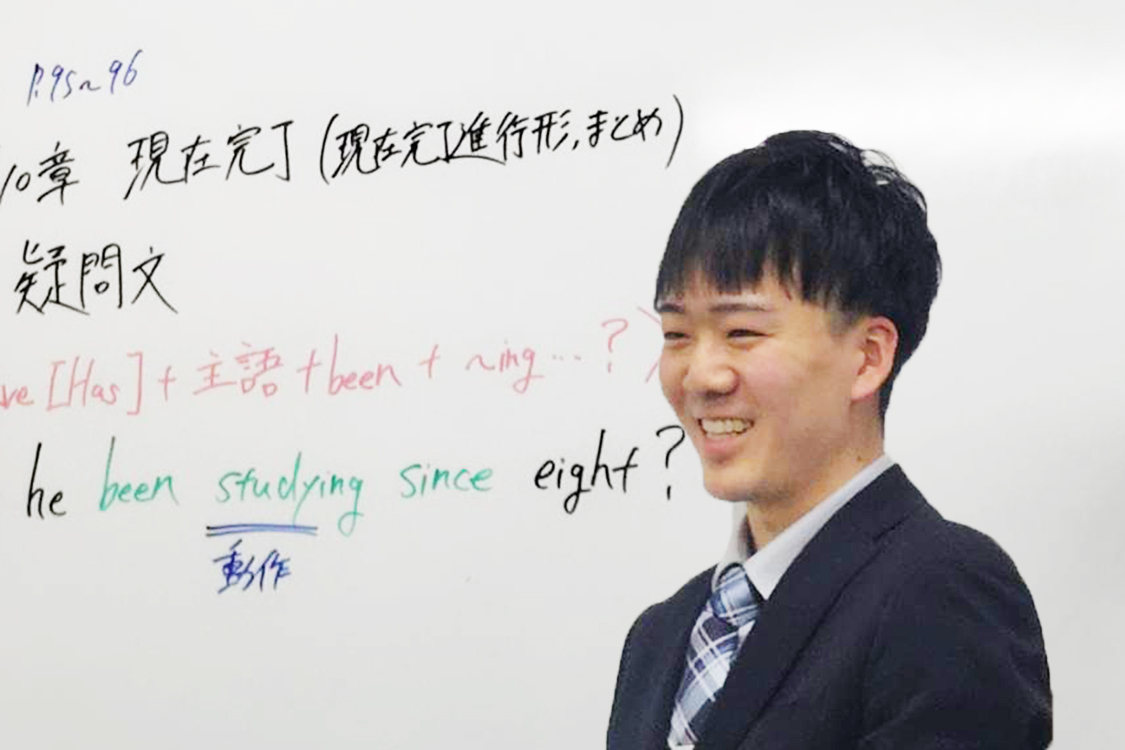 P.95~96
10章 現在完了(現在完了進行形,まとめ)
疑問文
ve [Has] + 主語 + been + ~ing…?
he been studying since eight?
動作